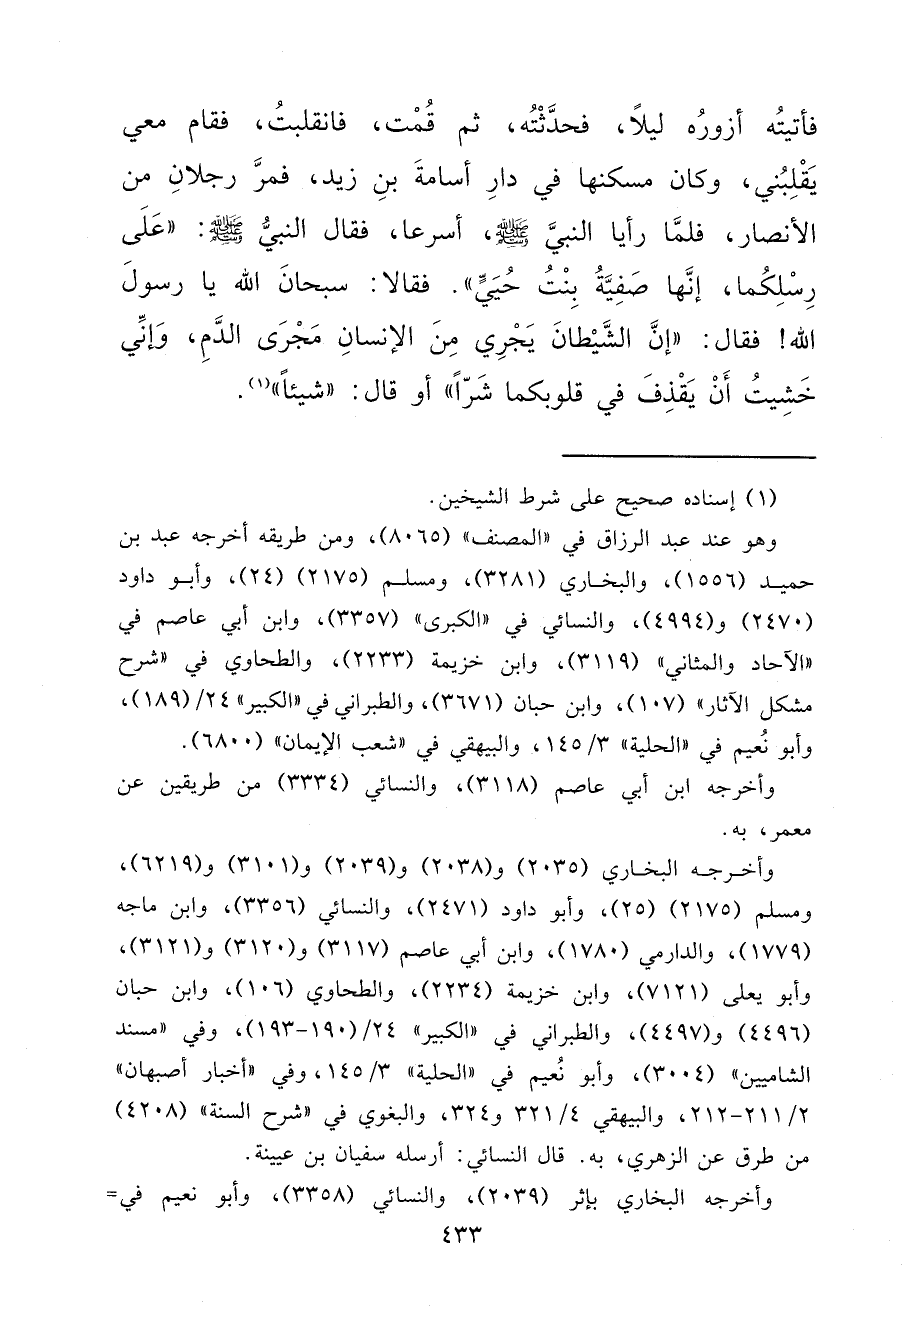 فأتيتُه أزورُه ليلاً، فحدَّثْتُه، ثم قُمْت، فانقلبتُ، فقام معي
يَقْلِبُني، وكان مسكنها في دارِ أسامةَ بنِ زيد، فمرَّ رجلانِ من
الأنصار، فلمَّا رأيا النبيَّ ﷺ، أسرعا، فقال النبيُّ ﷺ: «عَلَى
رِسْلِكُما، إنَّها صَفِيَّةُ بِنْتُ حُيَيٍّ». فقالا: سبحانَ الله يا رسولَ
الله! فقال: «إنَّ الشَّيْطانَ يَجْرِي مِنَ الإنسانِ مَجْرَى الدَّمِ، وَإنِّي
خَشِيتُ أَنْ يَقْذِفَ في قلوبكما شَرّاً» أو قال: «شيئاً»(١).
(١) إسناده صحيح على شرط الشيخين.
وهو عند عبد الرزاق في «المصنف» (٨٠٦٥)، ومن طريقه أخرجه عبد بن
حميد (١٥٥٦)، والبخاري (٣٢٨١)، ومسلم (٢١٧٥) (٢٤)، وأبو داود
(٢٤٧٠) و(٤٩٩٤)، والنسائي في «الكبرى» (٣٣٥٧)، وابن أبي عاصم في
«الآحاد والمثاني» (٣١١٩)، وابن خزيمة (٢٢٣٣)، والطحاوي في «شرح
مشكل الآثار» (١٠٧)، وابن حبان (٣٦٧١)، والطبراني في «الكبير» ٢٤/(١٨٩)،
وأبو نُعيم في «الحلية» ١٤٥/٣، والبيهقي في «شعب الإيمان» (٦٨٠٠).
وأخرجه ابن أبي عاصم (٣١١٨)، والنسائي (٣٣٣٤) من طريقين عن
معمر، به.
وأخرجه البخاري (٢٠٣٥) و(٢٠٣٨) و(٢٠٣٩) و(٣١٠١) و(٦٢١٩)،
ومسلم (٢١٧٥) (٢٥)، وأبو داود (٢٤٧١)، والنسائي (٣٣٥٦)، وابن ماجه
(١٧٧٩)، والدارمي (١٧٨٠)، وابن أبي عاصم (٣١١٧) و(٣١٢٠) و(٣١٢١)،
وأبو يعلى (٧١٢١)، وابن خزيمة (٢٢٣٤)، والطحاوي (١٠٦)، وابن حبان
(٤٤٩٦) و(٤٤٩٧)، والطبراني في «الكبير» ٢٤/(١٩٠-١٩٣)، وفي «مسند
الشاميين» (٣٠٠٤)، وأبو نُعيم في «الحلية» ١٤٥/٣، وفي «أخبار أصبهان»
٢١١/٢-٢١٢، والبيهقي ٣٢١/٤ و٣٢٤، والبغوي في «شرح السنة» (٤٢٠٨)
من طرق عن الزهري، به. قال النسائي: أرسله سفيان بن عيينة.
وأخرجه البخاري بإثر (٢٠٣٩)، والنسائي (٣٣٥٨)، وأبو نعيم في=
٤٣٣